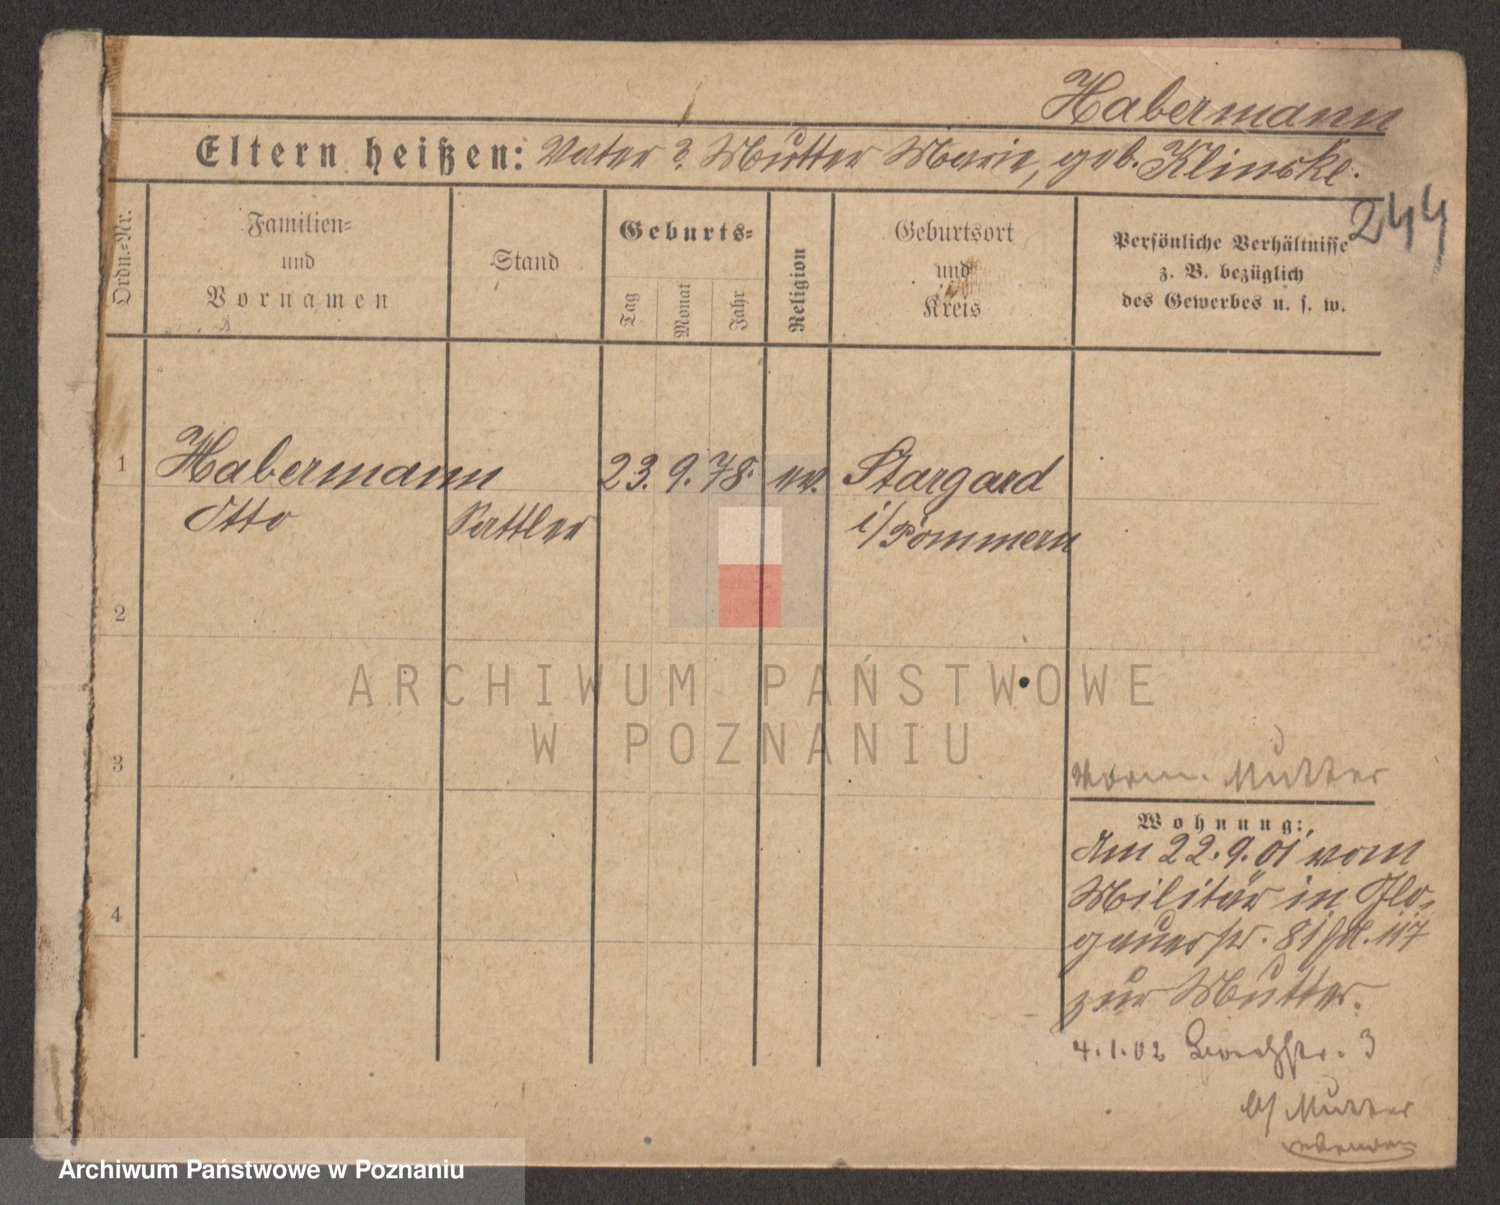 Habermann
Eltern heißen: Vater ? Mutter Marie, geb. Klinske.
244
Ordn.-Nr.
Familien-
und
Vornamen
Stand
Geburts-
Tag
Monat
Jahr
Religion
Geburtsort
und
Kreis
Persönliche Verhältnisse
z. B. bezüglich
des Gewerbes u. s. w.
1
Habermann
Otto
Sattler
23. 9. 78.
ev.
Stargard
i/Pommern
2
ARCHIWUM PAŃSTWOWE
W POZNANIU
3
Mutter
Wohnung:
Am 22.9.01 vom
Militär in Glo-
gauerstr. 81
zur Mutter.
4
4.1.02 3
b/ Mutter
Archiwum Państwowe w Poznaniu